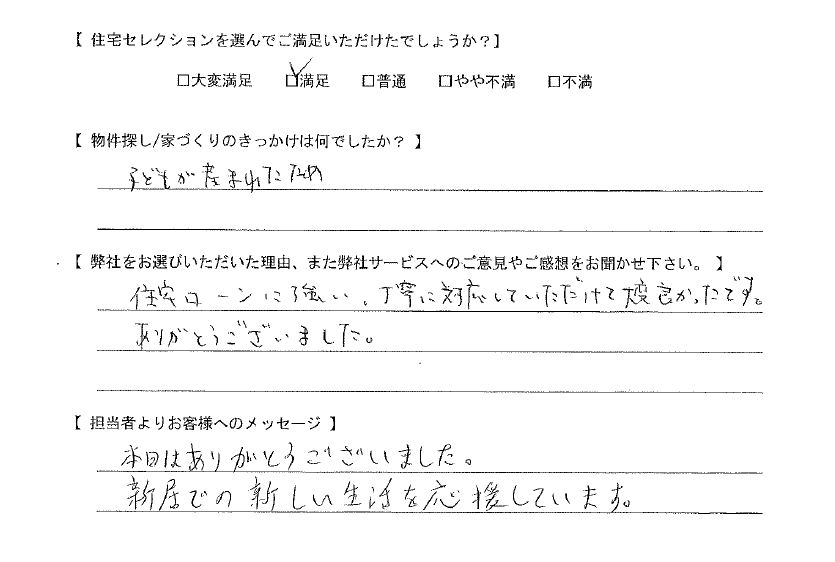 【 住宅セレクションを選んでご満足いただけたでしょうか?】
□大変満足 ☑満足 □普通 □やや不満 □不満
【 物件探し/家づくりのきっかけは何でしたか? 】
子どもが産まれたため
【 弊社をお選びいただいた理由、また弊社サービスへのご意見やご感想をお聞かせ下さい。 】
住宅ローンに強い、丁寧に対応していただけて大変良かったです。
ありがとうございました。
【 担当者よりお客様へのメッセージ 】
本日はありがとうございました。
新居での新しい生活を応援しています。